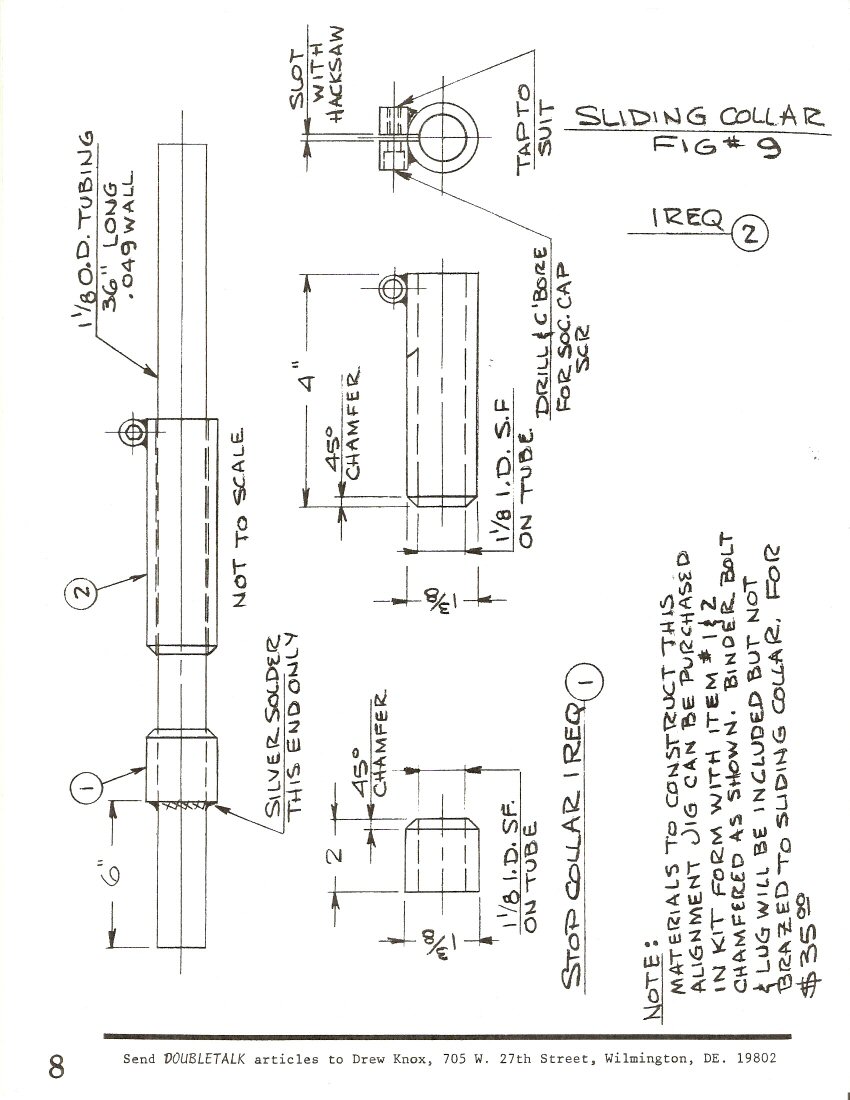 SLOT
WITH
HACKSAW
TAP TO
SUIT
SLIDING COLLAR
FIG # 9
1 REQ 2
1 1/8 O.D. TUBING
36" LONG
.049 WALL
DRILL & C'BORE
FOR SOC. CAP
SCR
4"
45°
CHAMFER
1 1/8 I.D. S.F
ON TUBE
1 3/8
NOT TO SCALE
2
1
SILVER SOLDER
THIS END ONLY
6"
45°
CHAMFER
2
1 1/8 I.D. SF.
ON TUBE
1 3/8
STOP COLLAR 1 REQ 1
NOTE:
MATERIALS TO CONSTRUCT THIS
ALIGNMENT JIG CAN BE PURCHASED
IN KIT FORM WITH ITEM #1 & 2
CHAMFERED AS SHOWN. BINDER BOLT
& LUG WILL BE INCLUDED BUT NOT
BRAZED TO SLIDING COLLAR. FOR
$35.00
Send DOUBLETALK articles to Drew Knox, 705 W. 27th Street, Wilmington, DE. 19802
8